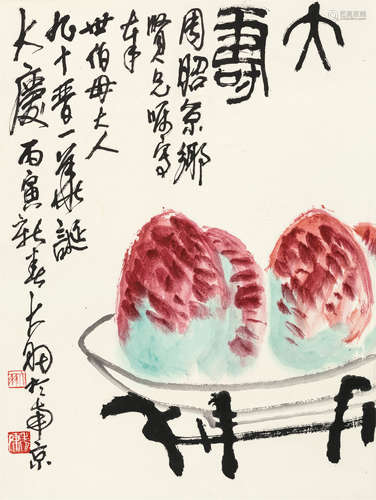 大壽
周昭京鄉
賢兄囑寫
奉
世伯母大人
九十晉一華誕
大慶丙寅新春大羽於南京